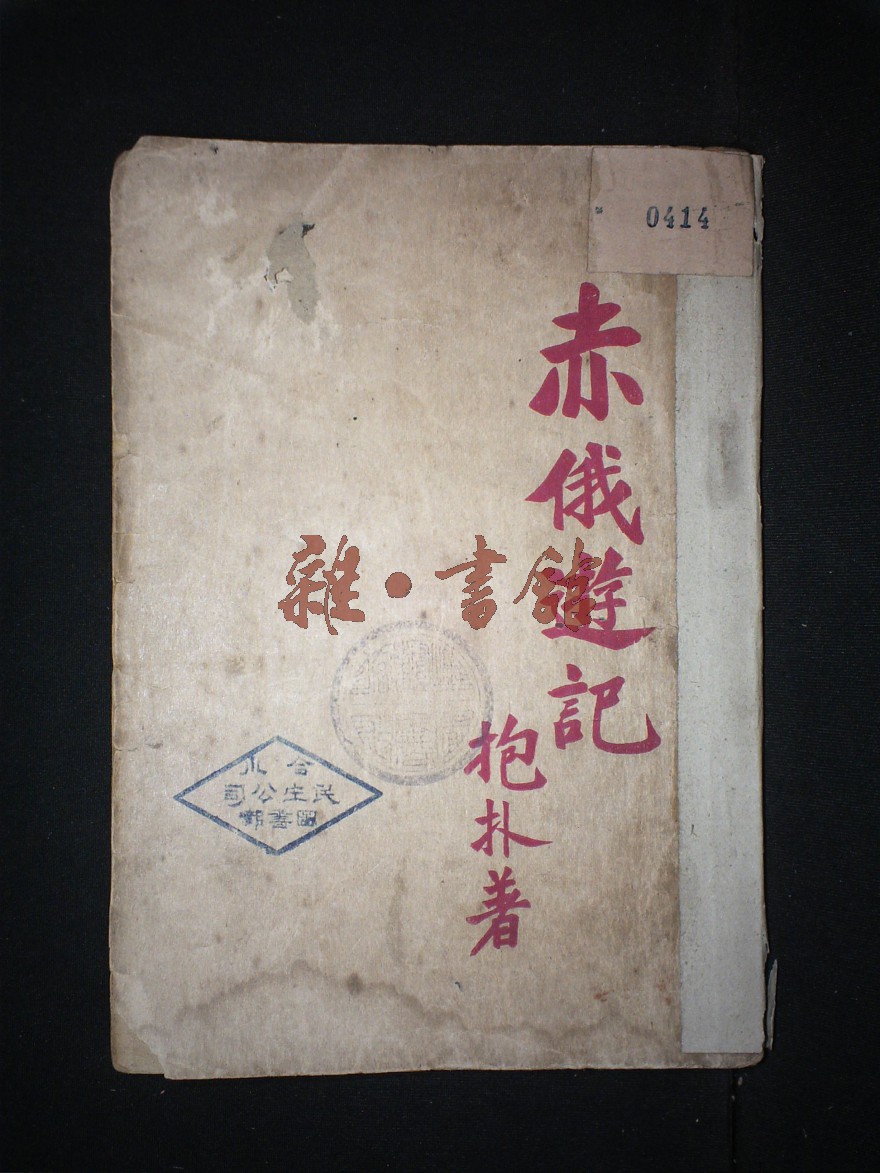 0414
赤俄遊記
抱朴著
雜·書館
合川
民生公司
圖書館